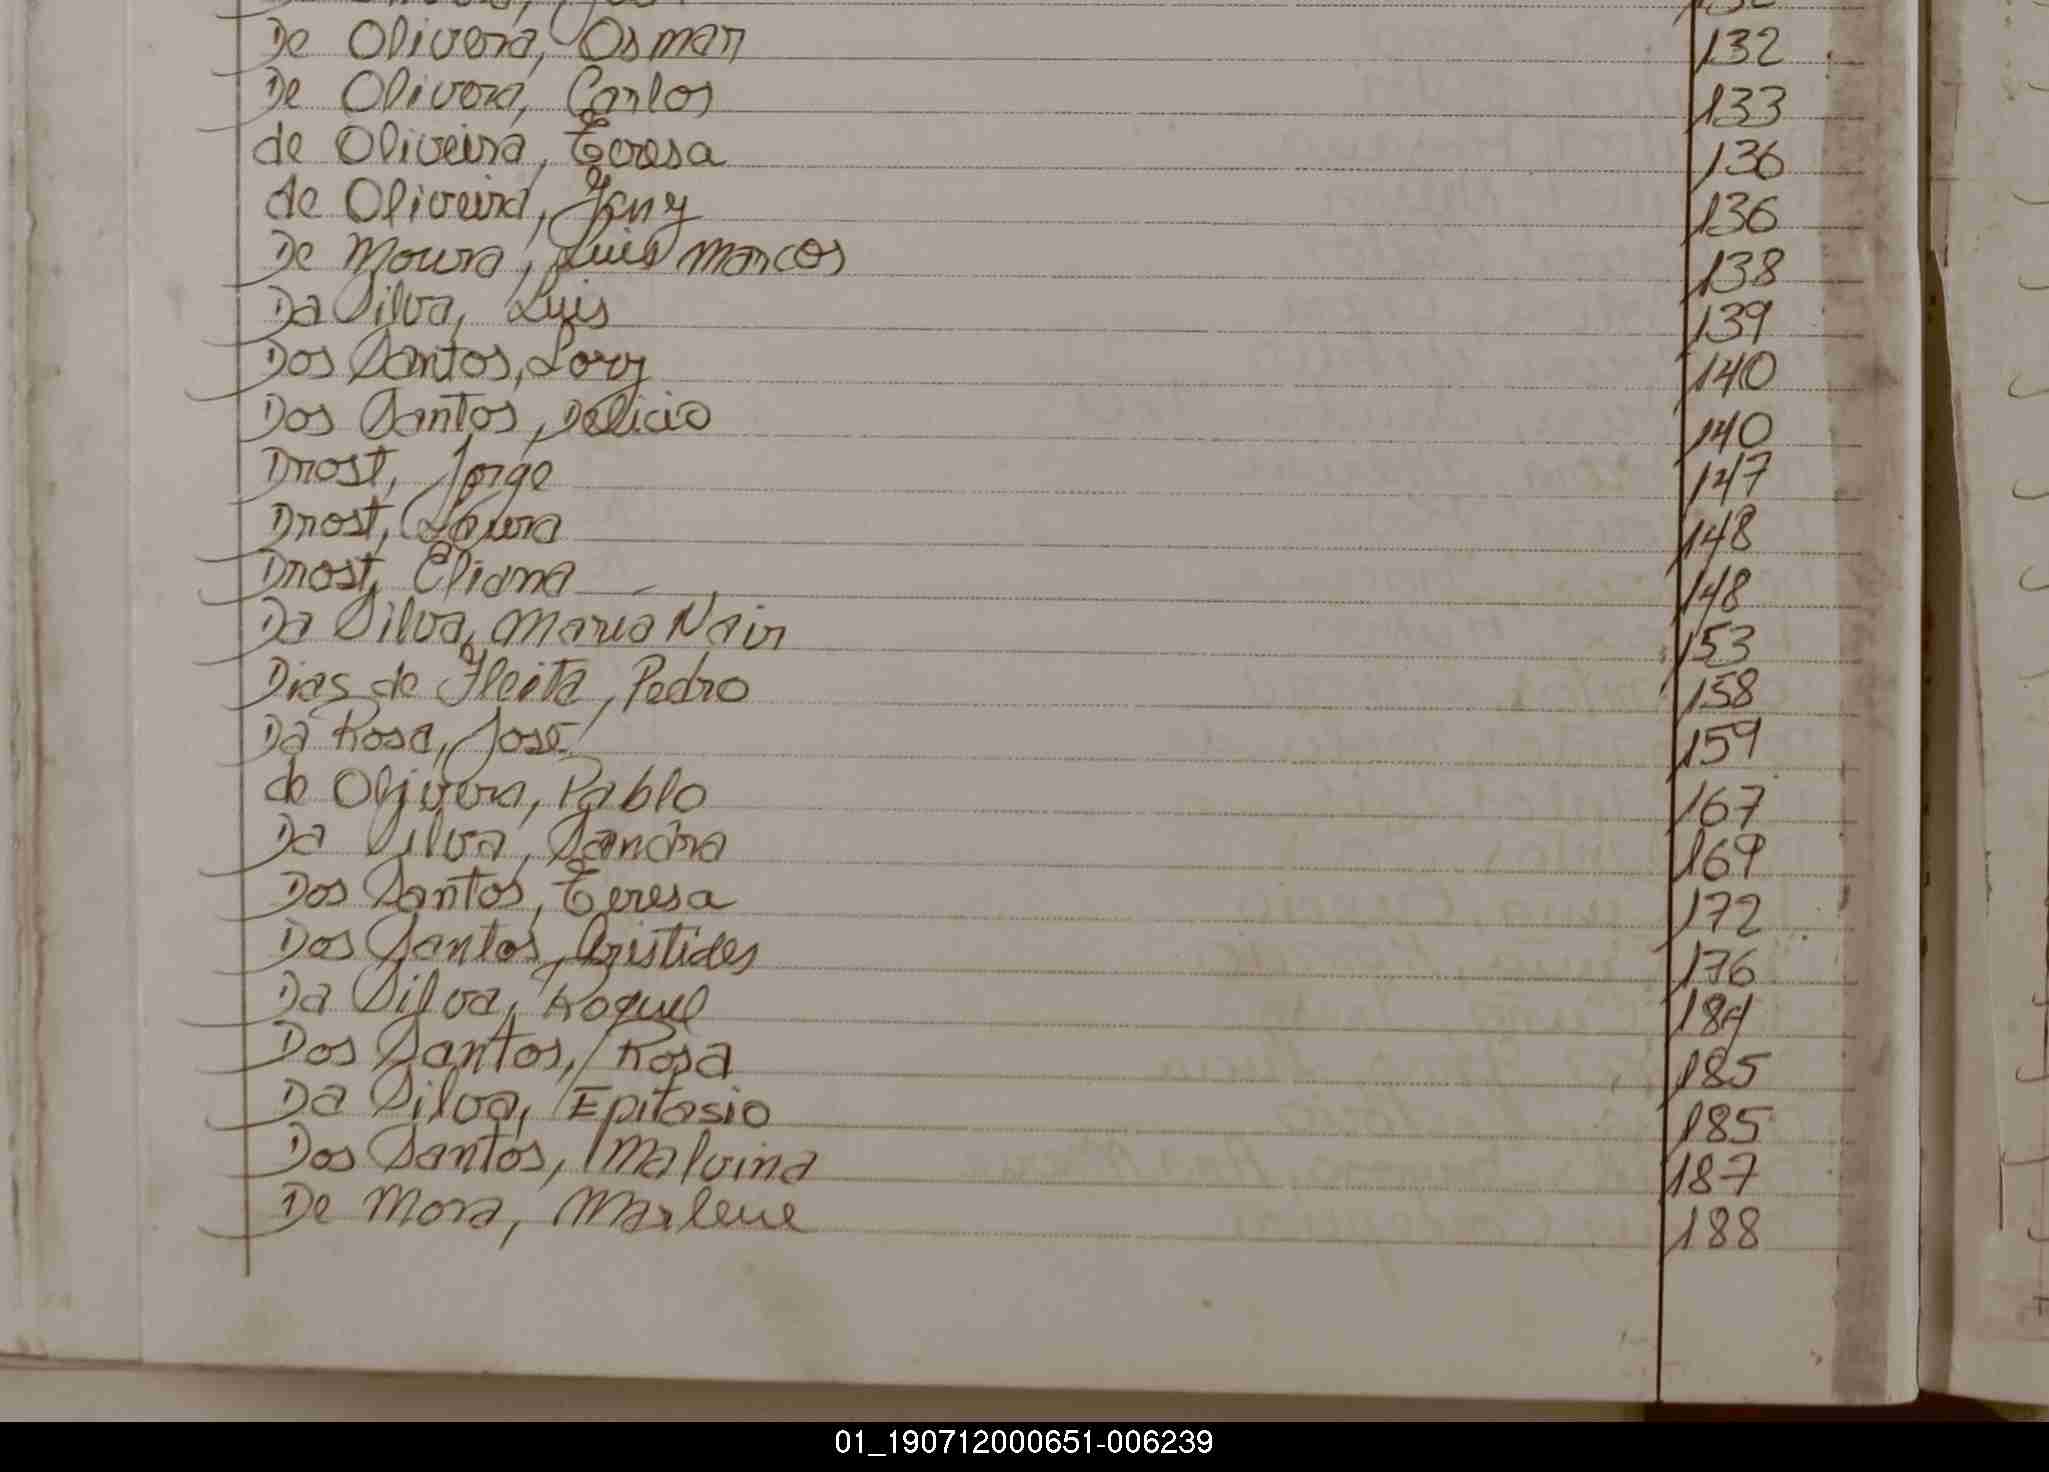 De Olivera, Osmar 132
De Olivera, Carlos 133
de Oliveira, Teresa 136
de Oliveira, Jany 136
De Moura, Luis Marcos 138
Da Silva, Luis 139
Dos Santos, Lory 140
Dos Santos, Delicio 140
Drost, Jorge 147
Drost, Laura 148
Drost, Eliana 148
Da Silva, Maria Nair 153
Dias de Fleita, Pedro 158
Da Rosa, José 159
de Olivera, Pablo 167
Da Silva, Sandra 169
Dos Santos, Teresa 172
Dos Santos, Aristides 176
Da Silva, Roque 184
Dos Santos, Rosa 185
Da Silva, Epitasio 185
Dos Santos, Malvina 187
De Mora, Marlene 188
01_190712000651-006239